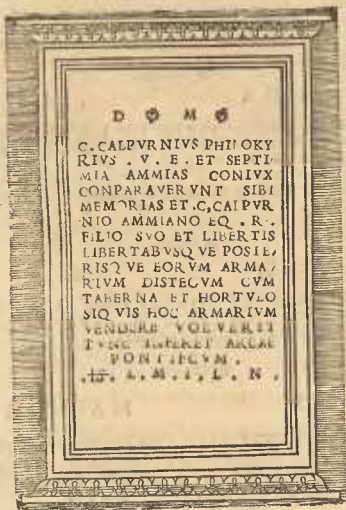 D M
C. CALPVRNIVS PHILOKY
RIVS . V . E . ET SEPTI
MIA AMMIAS CONIVX
CONPARAVERVNT SIBI
MEMORIAS ET . C, CALPVR
NIO AMMIANO EQ . R .
FILIO SVO ET LIBERTIS
LIBERTABVSQVE POSTE/
RISQVE EORVM ARMA/
RIVM DISTEGVM CVM
TABERNA ET HORTVLO
SIQVIS HOC ARMARIVM
VENDERE VOLVERIT
TVNC INFERET ARCAE
PONTIFICVM .
L . N .